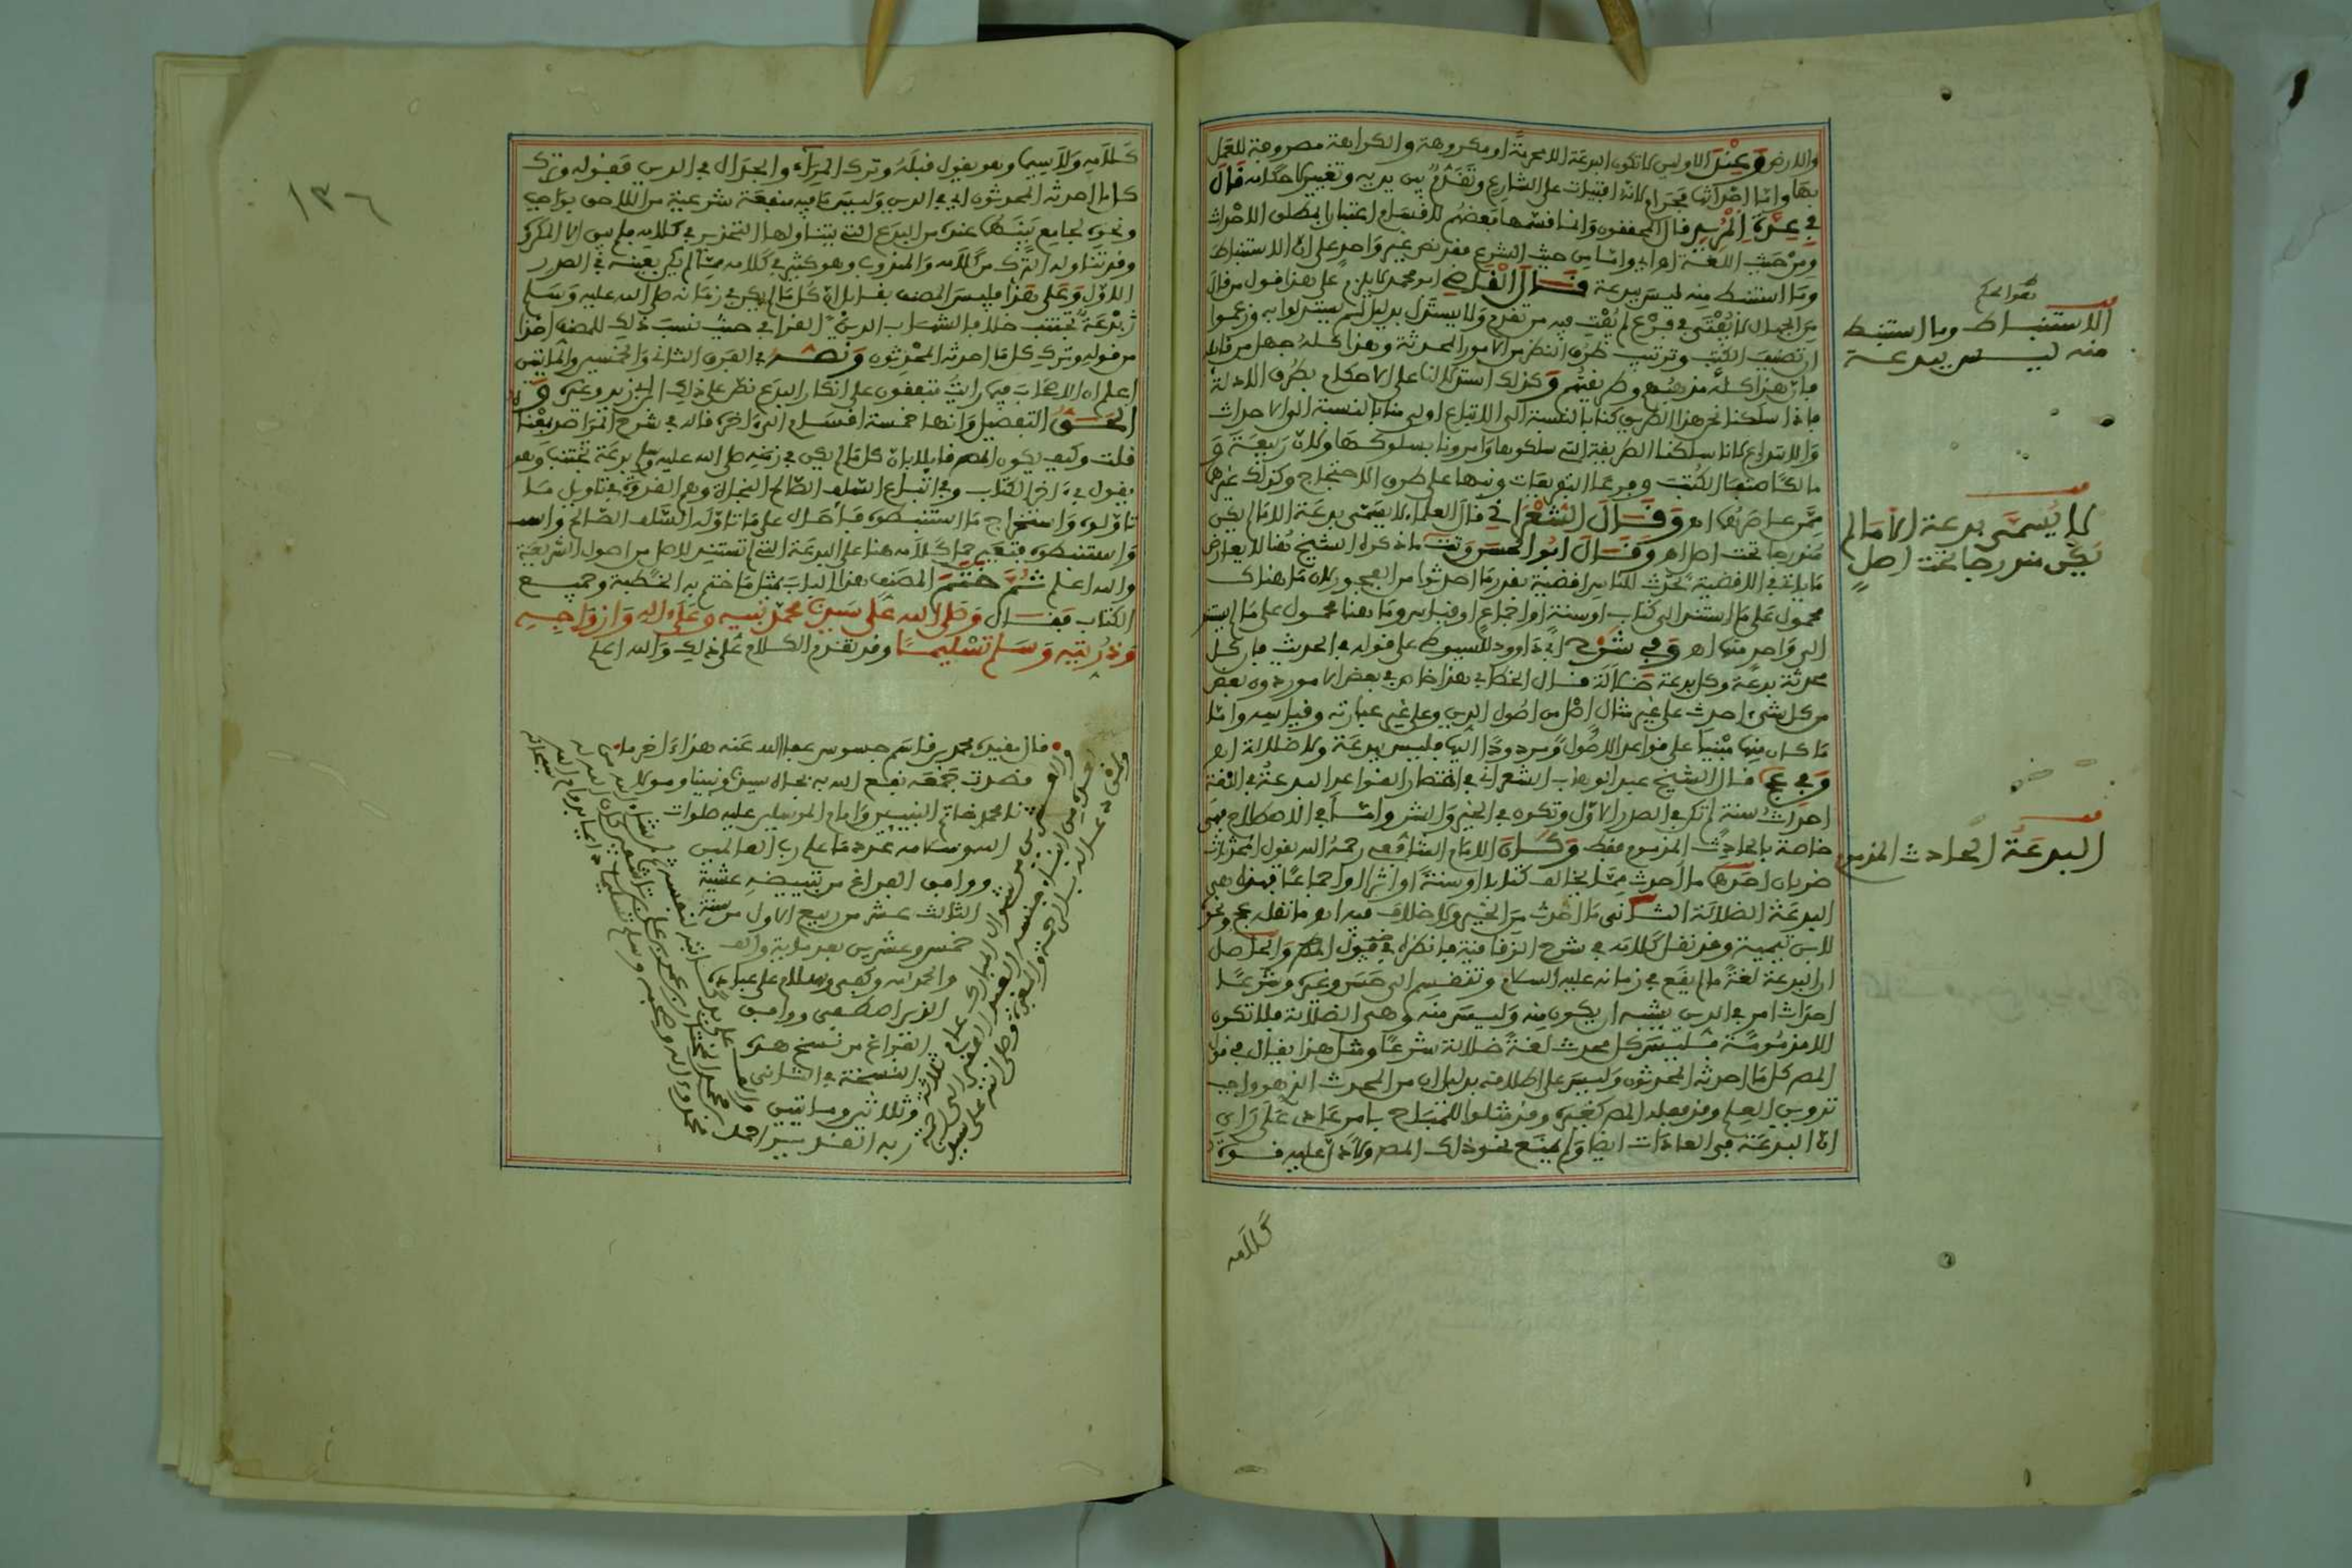 والارض وعند الاولين لا تكون البدعة الا محرمة او مكروهة والكراهة مصروفة للعمل
بها واما احداثها فحرام لانه افتيات على الشارع وتقدم بين يديه وتغيير لاحكامه قال
في عدة المريد قال المحققون وانما قسمها بعضهم للاقسام اعتبارا بمطلق الاحداث
ومن حيث اللغة اهـ اي واما من حيث الشرع فقد نص غير واحد على ان الاستنباط
وما استنبط منه ليس ببدعة قال القاضي ابو محمد لا يلزم على هذا قول من قال
من الجهال لا يفتى في فرع لم يفت فيه من تقدم ولا يستدل بدليل لم يستدلوا به وزعموا
ان تصنيف الكتب وترتيب طرق النظر من الامور المحدثة وهذا كله جهل من قائله
فان هذا كله مذهبهم وطريقتهم وكذلك استدلالنا على الاحكام بطرق الادلة
فاذا سلكنا نحن هذا الطريق كنا بالنسبة الى الاتباع اولى منا بالنسبة الى الاحداث
والابتداع لانا سلكنا الطريقة التي سلكوها وامرونا بسلوكها ولان ربيعة و
مالكا صنفا الكتب وفرعا التفريعات ونبها على طرق الاحتجاج وكذلك غيرهما
ممن عاصرهما اهـ وقال الشعراني قال العلماء لا يسمى بدعة الا ما لم يكن
مندرجا تحت اصل اهـ وقال ابو الحسن وتت ما ذكره الشيخ هنا لا يعارض
ما يأتي في الاقضية تحدث للناس اقضية بقدر ما احدثوا من الفجور لان ما هناك
محمول على ما استند الى كتاب او سنة او اجماع او قياس وما هنا محمول على ما لم يستند
الى واحد منها اهـ وفي شرح ابي داوود للسيوطي على قوله في الحديث فان كل
محدثة بدعة وكل بدعة ضلالة قال الخطابي هذا خاص في بعض الامور دون بعض
من كل شيء احدث على غير مثال اصل من اصول الدين وعلى غير عبارته وقياسه واما
ما كان منها مبنيا على قواعد الاصول ومردودا اليها فليس ببدعة ولا ضلالة اهـ
وفي عج قال الشيخ عبد الوهاب الشعراني في اختصار القواعد البدعة في اللغة
احداث سنة لم تكن في الصدر الاول وتكون في الخير والشر واما في الاصطلاح فهي
خاصة بالحادث المذموم فقط وكان الامام الشافعي رحمه الله يقول المحدثات
ضربان احدهما ما احدث مما يخالف كتابا او سنة او اثرا او اجماعا فهذه هي
البدعة الضلالة الثاني ما احدث من الخير ولا خلاف فيه اهـ وما نقل عج ونحوه
لابن تيمية وقد نقل كلامه في شرح الزقاقية فانظره فيقول المص والحاصل
ان البدعة لغة ما لم يقع في زمانه عليه السلام وتنقسم الى حسن وغيره وشرعا
احداث امر في الدين يشبه ان يكون منه وليس منه وهي الضلالة فلا تكون
الا مذمومة فليس كل محدث لغة ضلالة شرعا ومثل هذا يقال في قول
المص كل ما احدثه المحدثون وليس على اطلاقه بدليل ان من المحدث الذي هو واجب
تدوين العلم وقد فعله المص كغيره وقد مثلوا للمباح بامر عادي على راي
ان البدعة في العادات ايضا ولم يمنع نحو ذلك المص ولا دل عليه قوة
كلامه
بقوا لحكم
الاستنباط وما استنبط
منه ليس ببدعة
لا يسمى بدعة الا ما لم
يكن مندرجا تحت اصل
البدعة الحادث المذموم
١٣٦
كلامه ولا سيما وهو يقول قبله وترك المراء والجدال في الدين فقوله وترك
كل ما احدثه المحدثون اي في الدين وليس ما فيه منفعة شرعية من اللاحق بواجب
ونحوه بجامع يشبهها عنده من البدع التي يتناولها التحذير في كلامه فليس الا المكروه
وقد تناوله الترك من كلامه والمندوب وهو كثير في كلامه مما لم يكن بعينه في الصدر
الاول وعلى هذا فليس المصنف بقائل ان كل ما لم يكن في زمانه صلى الله عليه وسلم
بدعة تجتنب خلافا لشهاب الدين القرافي حيث نسب ذلك للمصنف اخذا
من قوله وترك كل ما احدثه المحدثون ونصه في الفرق الثاني والخمسين والمائتين
اعلم ان الاصحاب فيما رايت متفقون على انكار البدع نص على ذلك ابن ابي زيد وغيره و
الحق التفصيل وانها خمسة اقسام الى ءاخره قاله في شرح المراصد بعضنا
قلت وكيف يكون المص قائلا بان كل ما لم يكن في زمنه صلى الله عليه وسلم بدعة تجتنب وهو
يقول في ءاخر الكتاب وفي اتباع السلف الصالح النجاة وهم القدوة في تاويل ما
تاولوه واستخراج ما استنبطوه فاحال على ما تاوله السلف الصالح
واستنبطوه فتعين حمل كلامه هنا على البدعة التي لم تستند لاصل من اصول الشريعة
والله اعلم ثم ختم المصنف هذا الباب بمثل ما ختم به الخطبة وجميع
الكتاب فقال وصلى الله على سيدنا محمد نبيه وعلى ءاله وازواجه
وذريته وسلم تسليما وقد تقدم الكلام على ذلك والله اعلم
قال مقيده محمد بن قاسم جسوس عفا الله عنه هذا ءاخر ما
قصدت جمعه نفع الله به بجاه سيدنا ونبينا ومولا
نا محمد خاتم النبيين وامام المرسلين عليه صلوات
الله وسلامه عدد ما علم رب العالمين
ووافق الفراغ من تبييضه عشية
الثالث عشر من ربيع الاول من سنة
خمس وعشرين بعد مائة والف
والحمد لله وكفى وسلام على عباده
الذين اصطفى ووافق
الفراغ من نسخ هذه
النسخة في الثاني
وثلاثين ومائتين